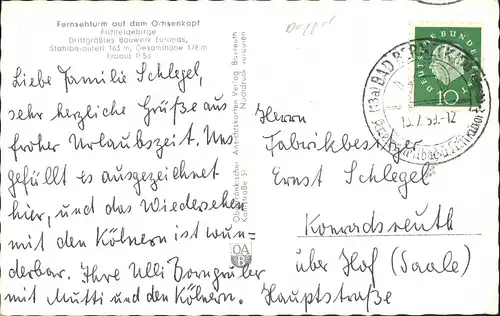 Fernsehturm auf dem Ochsenkopf
Fichtelgebirge
Drittgrößtes Bauwerk Europas,
Stahlbetonteil 163 m, Gesamthöhe 178 m
Erbaut 1958
Liebe Familie Schlegel,
sehr herzliche Grüße aus
froher Urlaubszeit. Uns
gefällt es ausgezeichnet
hier, und das Wiedersehen
mit den Kölnern ist wun-
derbar. Ihre Ulli Borngräber
mit Mutti und den Kölnern.
Oberfränkischer Ansichtskarten Verlag Bayreuth
Nachdruck verboten
OA
B
DEUTSCHE BUNDESPOST
10
(13a) BAD BERNECK
13.7.59.-12
Herrn
Fabrikbesitzer
Ernst Schlegel
Konradsreuth
über Hof (Saale)
Hauptstraße